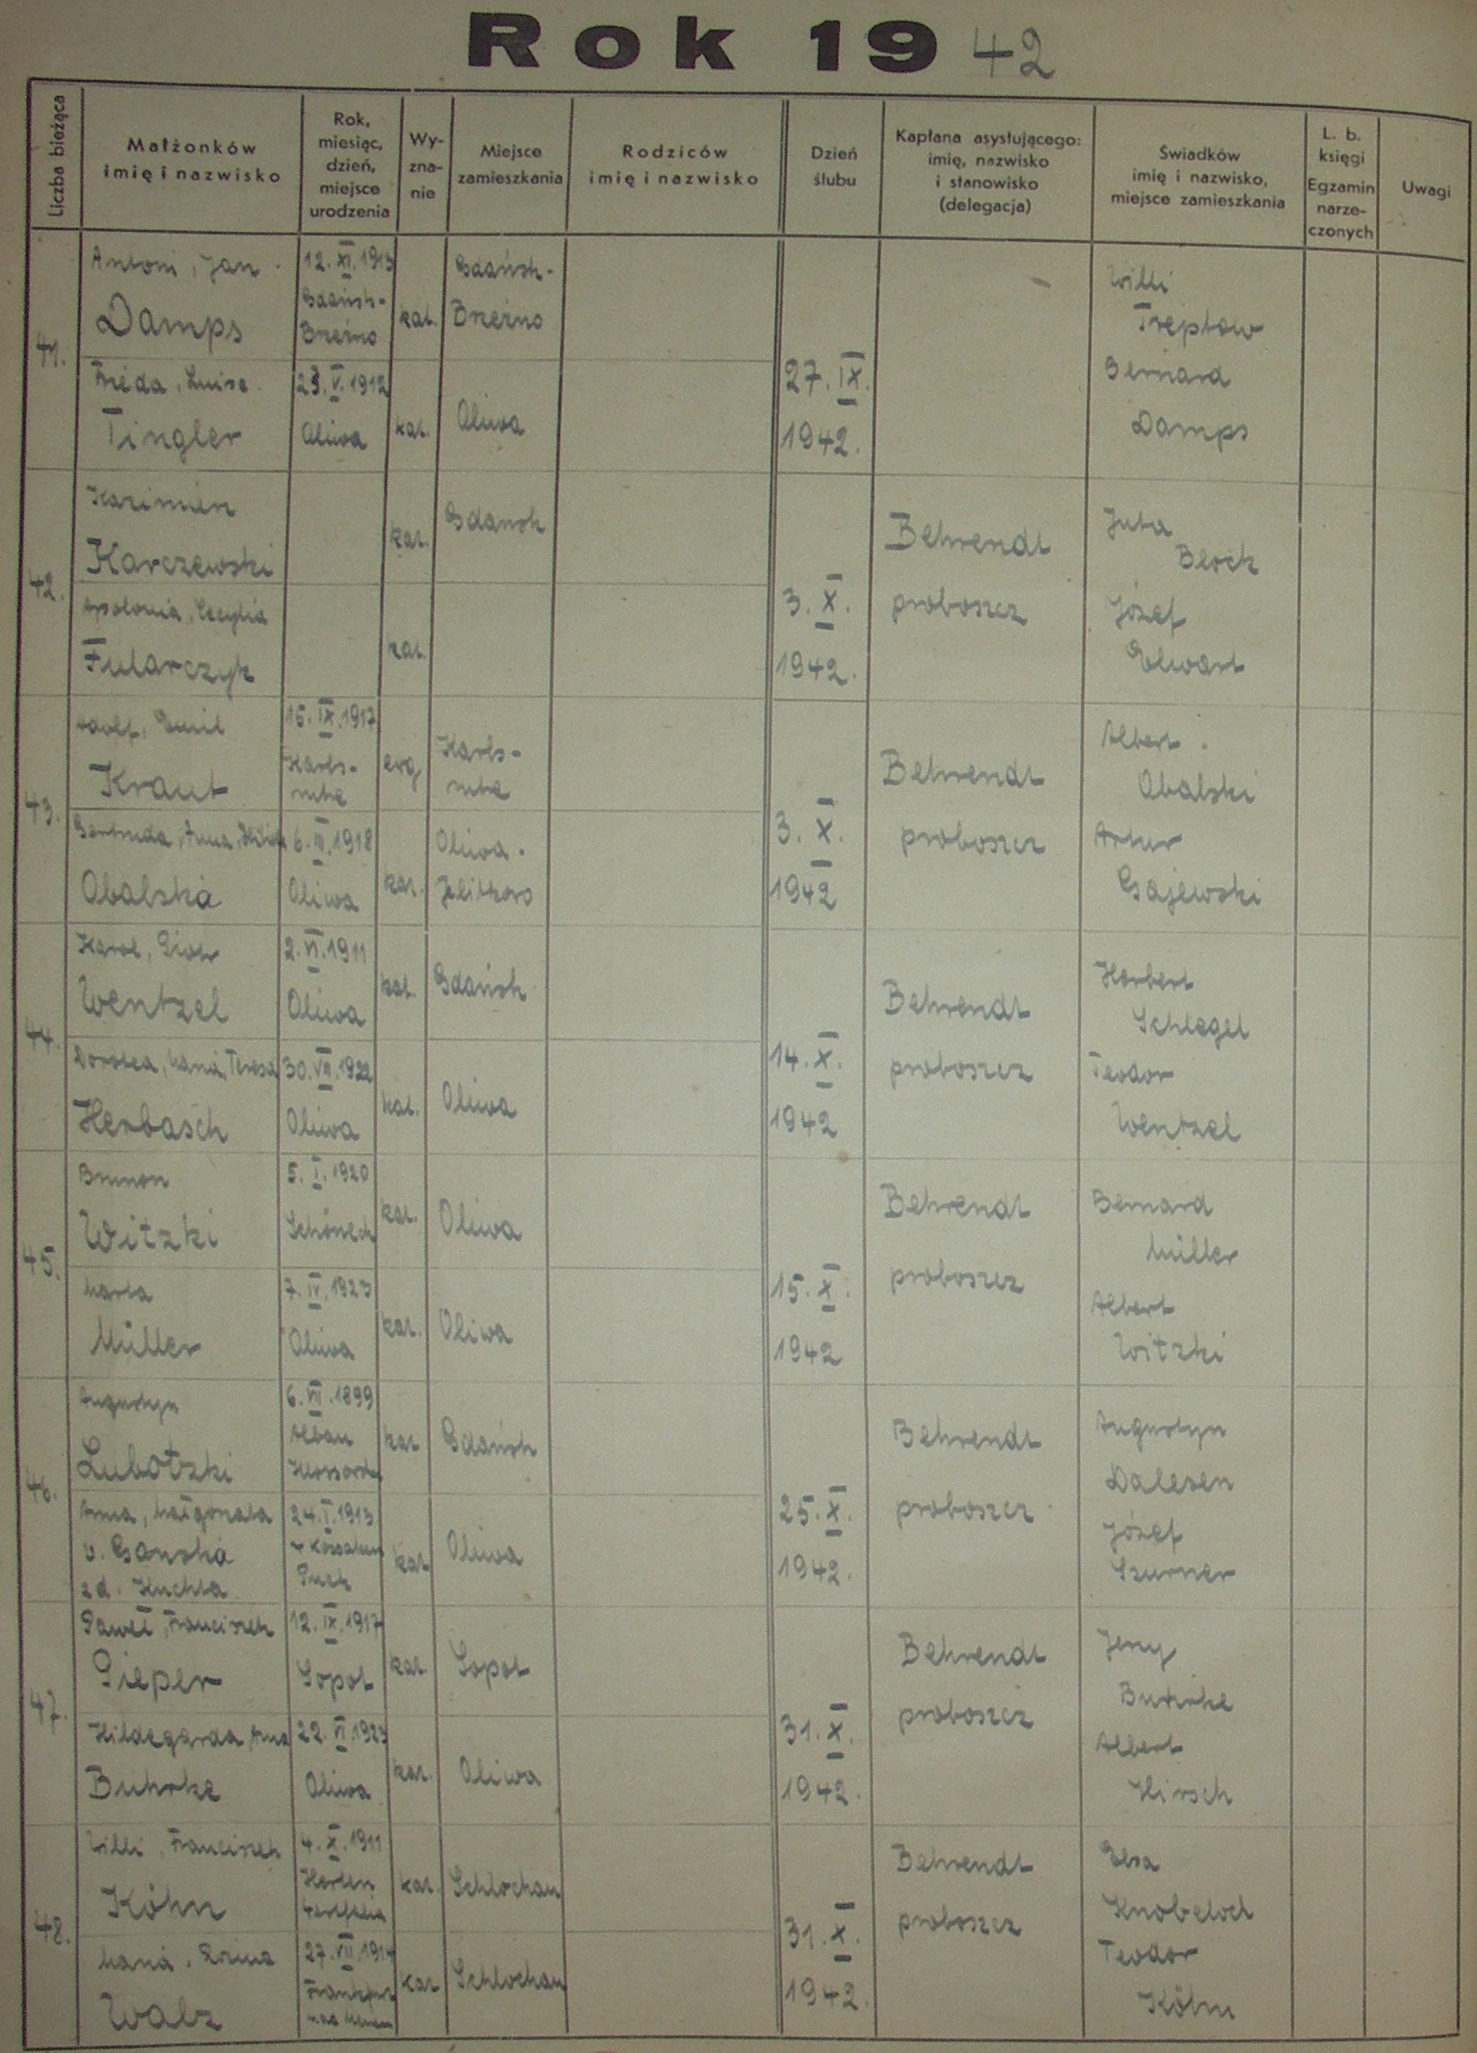 Rok 1942
Liczba bieżąca
Małżonków
imię i nazwisko
Rok,
miesiąc,
dzień,
miejsce
urodzenia
Wy-
zna-
nie
Miejsce
zamieszkania
Rodziców
imię i nazwisko
Dzień
ślubu
Kapłana asystującego:
imię, nazwisko
i stanowisko
(delegacja)
Świadków
imię i nazwisko,
miejsce zamieszkania
L. b.
księgi
Egzamin
narze-
czonych
Uwagi
41.
Antoni, Jan
Damps
12. XI. 1913
Gdańsk-
Brzeźno
kat.
Gdańsk-
Brzeźno
Frieda, Luise
Tingler
V. 1912
Oliwa
kat.
Oliwa
27. IX.
1942.
Willi
Treptow
Bernard
Damps
42.
Kazimierz
Karczewski
kat.
Gdańsk
Apolonia, Cecylia
Fularczyk
kat.
3. X.
1942.
Behrendt
proboszcz
Juta
Block
Józef
Elwart
43.
Adolf, Emil
Kraut
IX. 1917
Karls-
ruhe
ewg
Karls-
ruhe
Gertruda, Anna,
Obalska
6. III. 1918
Oliwa
kat.
Oliwa-
Jelitkowo
3. X.
1942
Behrendt
proboszcz
Albert
Obalski
Artur
Gajewski
44.
Karol, Piotr
Wentzel
2. VI. 1911
Oliwa
kat.
Gdańsk
Dorotea, Maria, Teresa
Herbasch
30. VII. 1922
Oliwa
kat.
Oliwa
14. X.
1942
Behrendt
proboszcz
Herbert
Schlegel
Teodor
Wentzel
45.
Brunon
Witzki
5. I. 1920
Schöneck
kat.
Oliwa
Marta
Müller
7. IV. 1923
Oliwa
kat.
Oliwa
15. X.
1942
Behrendt
proboszcz
Bernard
Müller
Albert
Witzki
46.
Augustyn
Lubotzki
6. VII. 1899
kat
Gdańsk
Anna, Małgorzata
v. Ganska
zd. Kuchta
24. I. 1913
Puck
kat
Oliwa
25. X.
1942.
Behrendt
proboszcz
Augustyn
Dalesen
Józef
Szurner
47.
Paweł, Franciszek
Pieper
12. IX. 1917
Sopot
kat
Sopot
Hildegarda, Anna
Buhrke
22. VI. 1923
Oliwa
kat.
Oliwa
31. X.
1942.
Behrendt
proboszcz
Jerzy
Buhrke
Albert
Hirsch
48.
Willi, Franciszek
Köhn
4. X. 1911
Herten
Westfalia
kat.
Schlochau
Maria, Erma
Walz
27. VII. 1914
Frankfurt
kat
Schlochau
31. X.
1942.
Behrendt
proboszcz
Elsa
Knobeloch
Teodor
Köhn